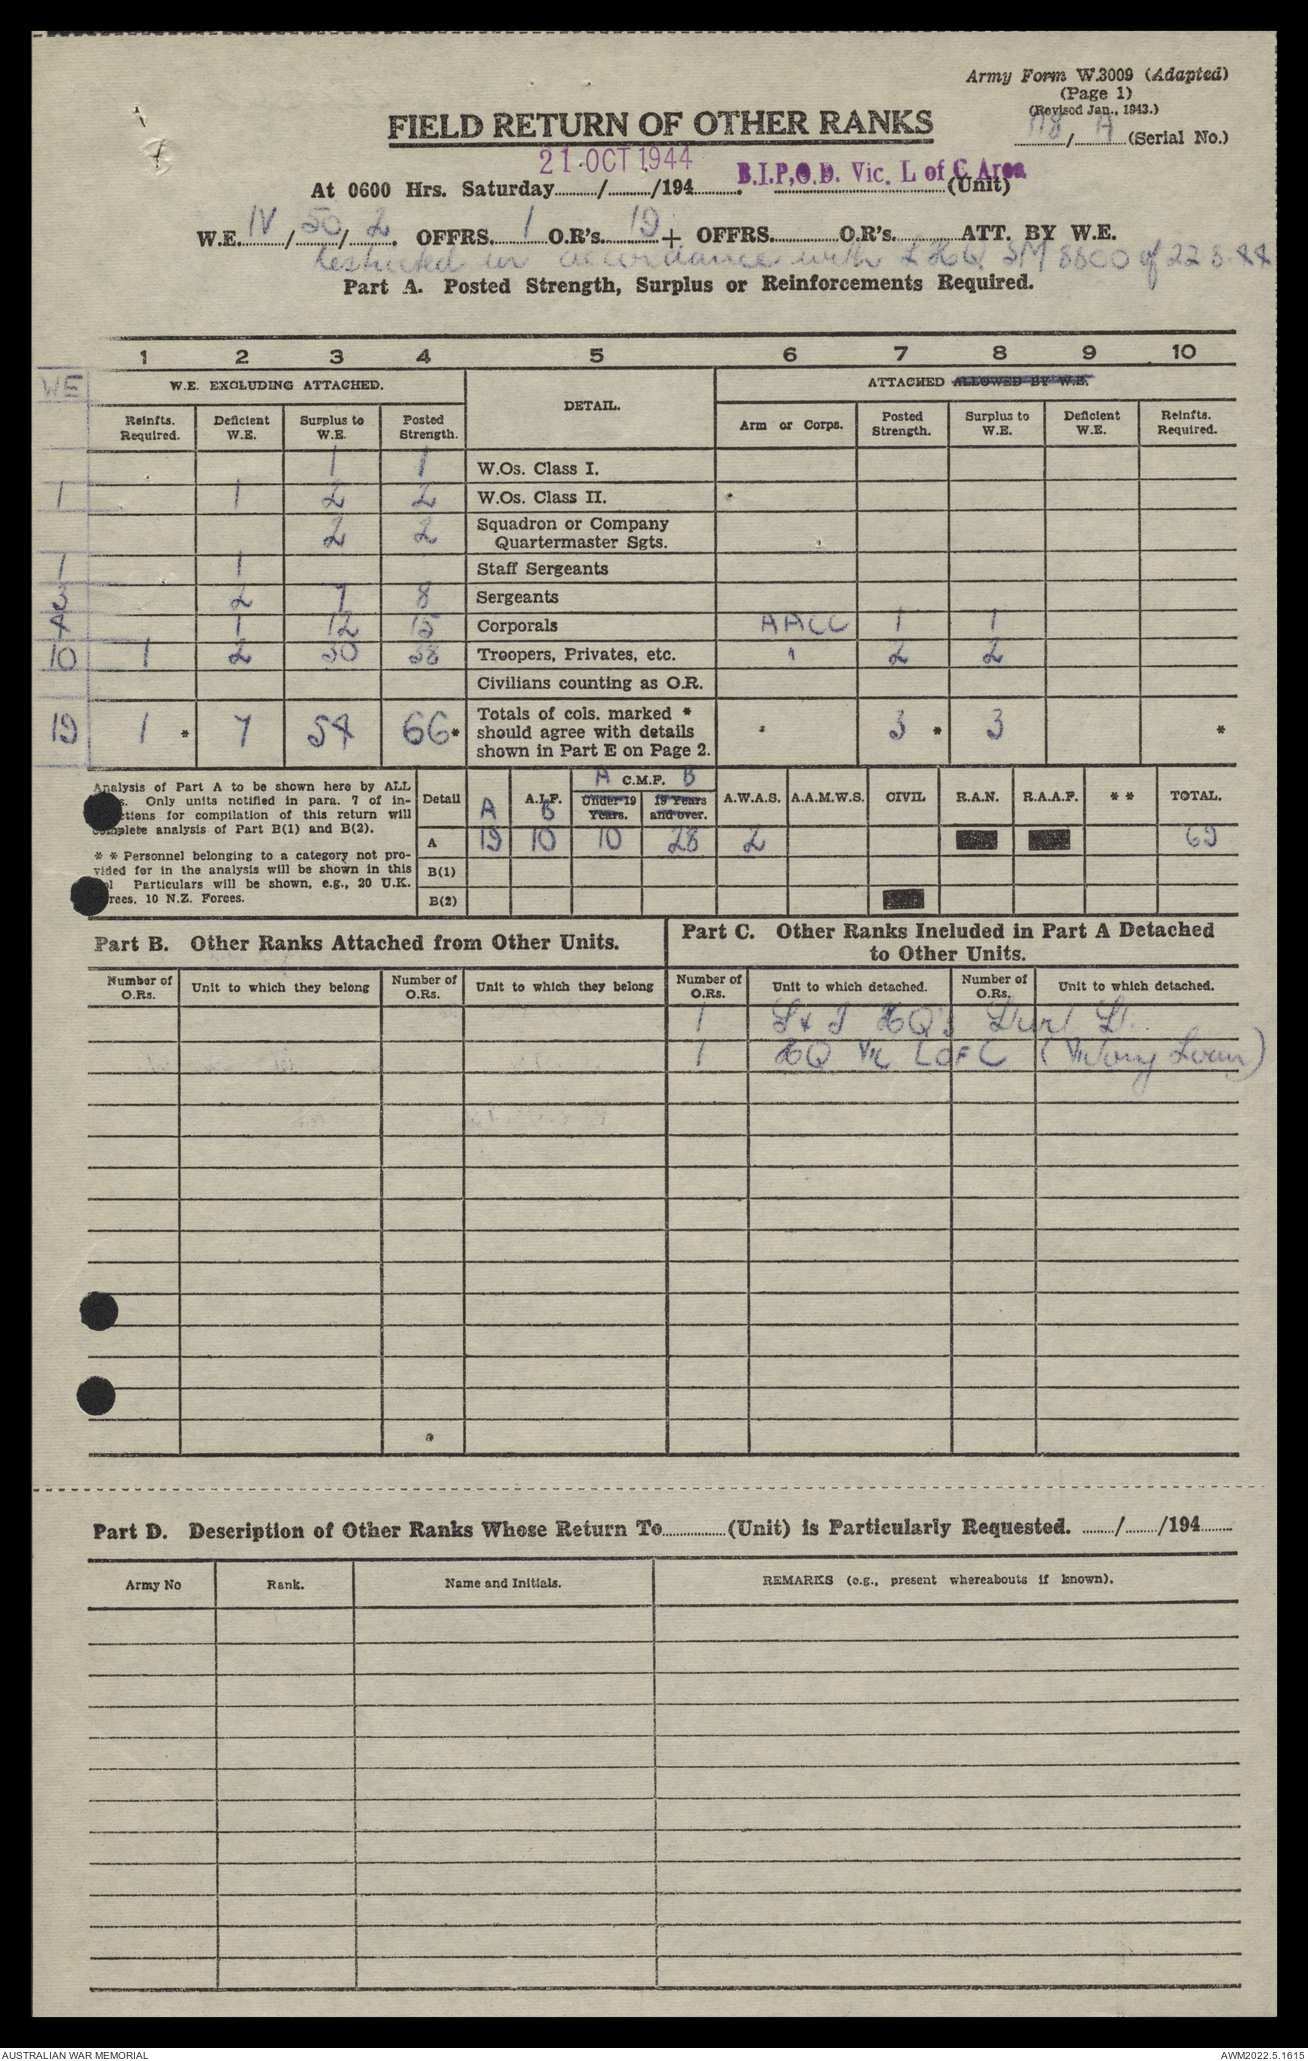 Army Form W.3009 (Adapted)
(Page 1)
(Revised Jan., 1943.)
118/ A (Serial No.)
FIELD RETURN OF OTHER RANKS
21 OCT 1944 B.I.P.O.D. Vic. L of C Area
At 0600 Hrs. Saturday........./........./194.......... (Unit)
W.E. IV / 50 / 2. OFFRS. 1 O.R's. 19 + OFFRS. O.R's. ATT. BY W.E.
Restricted in accordance with LHQ SM 8800 of 22 8 44
Part A. Posted Strength, Surplus or Reinforcements Required.
1 2 3 4 5 6 7 8 9 10
WE W.E. EXCLUDING ATTACHED. DETAIL. ATTACHED ALLOWED BY W.E.
Reinfts. Required. Deficient W.E. Surplus to W.E. Posted Strength. Arm or Corps. Posted Strength. Surplus to W.E. Deficient W.E. Reinfts. Required.
1 1 W.Os. Class I.
1 1 2 2 W.Os. Class II.
2 2 Squadron or Company Quartermaster Sgts.
1 1 Staff Sergeants
3 2 7 8 Sergeants
4 1 12 15 Corporals AACC 1 1
10 1 2 30 38 Troopers, Privates, etc. " 2 2
Civilians counting as O.R.
19 1 * 7 54 66* Totals of cols. marked * should agree with details shown in Part E on Page 2. 3 * 3 *
Analysis of Part A to be shown here by ALL
Only units notified in para. 7 of in-
ctions for compilation of this return will
complete analysis of Part B(1) and B(2).
* * Personnel belonging to a category not pro-
vided for in the analysis will be shown in this
Particulars will be shown, e.g., 20 U.K.
rces, 10 N.Z. Forces.
Detail A A.I.F. B A C.M.F. B Under 19 Years. 19 Years and over. A.W.A.S. A.A.M.W.S. CIVIL R.A.N. R.A.A.F. * * TOTAL.
A 19 10 10 28 2 69
B(1)
B(2)
Part B. Other Ranks Attached from Other Units.
Part C. Other Ranks Included in Part A Detached
to Other Units.
Number of O.Rs. Unit to which they belong Number of O.Rs. Unit to which they belong Number of O.Rs. Unit to which detached. Number of O.Rs. Unit to which detached.
1 S & T HQ's
1 HQ Vic L of C (Victory Loan)
Part D. Description of Other Ranks Whose Return To............(Unit) is Particularly Requested. ......./......./194.......
Army No Rank. Name and Initials. REMARKS (e.g., present whereabouts if known).
AUSTRALIAN WAR MEMORIAL AWM2022.5.1615